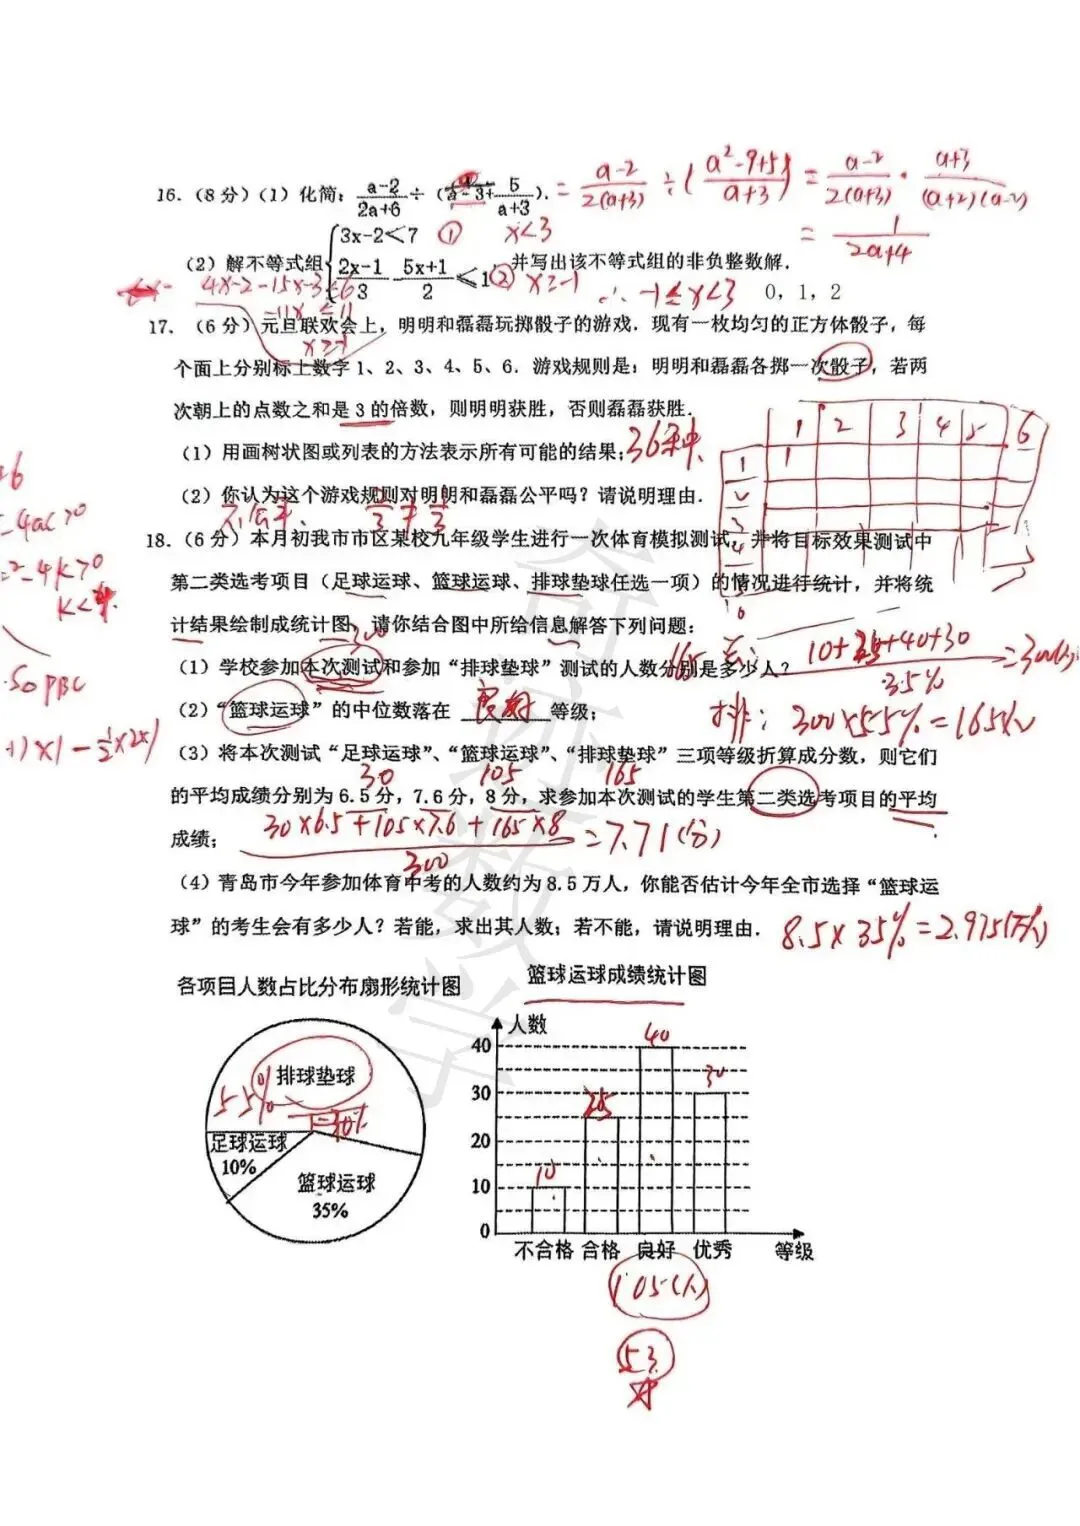 16. (8分) (1) 化简: (a-2)/(2a+6) ÷ (a-3+5/(a+3)). = (a-2)/(2(a+3)) ÷ ((a²-9+5)/(a+3)) = (a-2)/(2(a+3)) · (a+3)/((a+2)(a-2))
= 1/(2a+4)
3x-2<7 ① x<3
(2) 解不等式组{ (2x-1)/3 - (5x+1)/2 ≤1 ② 并写出该不等式组的非负整数解.
x≥-1 ∴ -1≤x<3 0, 1, 2
4x-2-15x-3≤6
-11x≤11
x≥-1
17. (6分) 元旦联欢会上, 明明和磊磊玩掷骰子的游戏. 现有一枚均匀的正方体骰子, 每
个面上分别标上数字 1、2、3、4、5、6. 游戏规则是: 明明和磊磊各掷一次骰子, 若两
次朝上的点数之和是 3 的倍数, 则明明获胜, 否则磊磊获胜.
1 2 3 4 5 6
(1) 用画树状图或列表的方法表示所有可能的结果; 36种
(2) 你认为这个游戏规则对明明和磊磊公平吗? 请说明理由.
不公平.
-4ac>0
-4k>0
k<
18. (6分) 本月初我市市区某校九年级学生进行一次体育模拟测试, 并将目标效果测试中
第二类选考项目 (足球运球、篮球运球、排球垫球任选一项) 的情况进行统计, 并将统
计结果绘制成统计图, 请你结合图中所给信息解答下列问题:
300
(1) 学校参加本次测试和参加“排球垫球”测试的人数分别是多少人?
165
(10+25+40+30)/35% =300(人)
(2) “篮球运球”的中位数落在 良好 等级;
排: 300×55%=165人
S△PBC
)×1-½×2×1
(3) 将本次测试“足球运球”、“篮球运球”、“排球垫球”三项等级折算成分数, 则它们
30 105 165
的平均成绩分别为 6.5 分, 7.6 分, 8 分, 求参加本次测试的学生第二类选考项目的平均
成绩; (30×6.5+105×7.6+165×8)/300 =7.71(分)
(4) 青岛市今年参加体育中考的人数约为 8.5 万人, 你能否估计今年全市选择“篮球运
球”的考生会有多少人? 若能, 求出其人数; 若不能, 请说明理由.
8.5×35%=2.975(万人)
各项目人数占比分布扇形统计图
排球垫球
55%
足球运球
10%
篮球运球
35%
篮球运球成绩统计图
人数
40
30
20
10
0
10
25
40
30
不合格 合格 良好 优秀 等级
105(人)
53